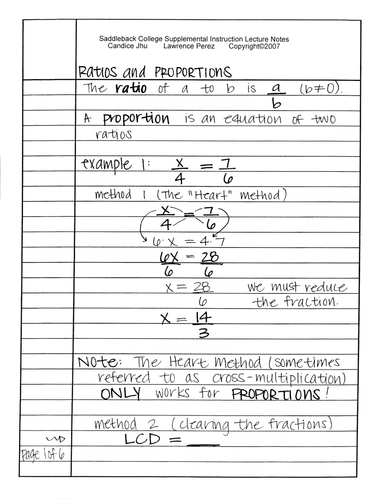 Saddleback College Supplemental Instruction Lecture Notes
Candice Jhu Lawrence Perez Copyright©2007
RATIOS AND PROPORTIONS
The ratio of a to b is a/b (b≠0).
A proportion is an equation of two
ratios
example 1: x/4 = 7/6
method 1 (The "Heart" method)
x/4 = 7/6
6·x = 4·7
6x/6 = 28/6
x = 28/6 we must reduce
the fraction.
x = 14/3
Note: The Heart Method (sometimes
referred to as cross-multiplication)
ONLY works for PROPORTIONS!
method 2 (clearing the fractions)
LCD = ___
Page 1 of 6